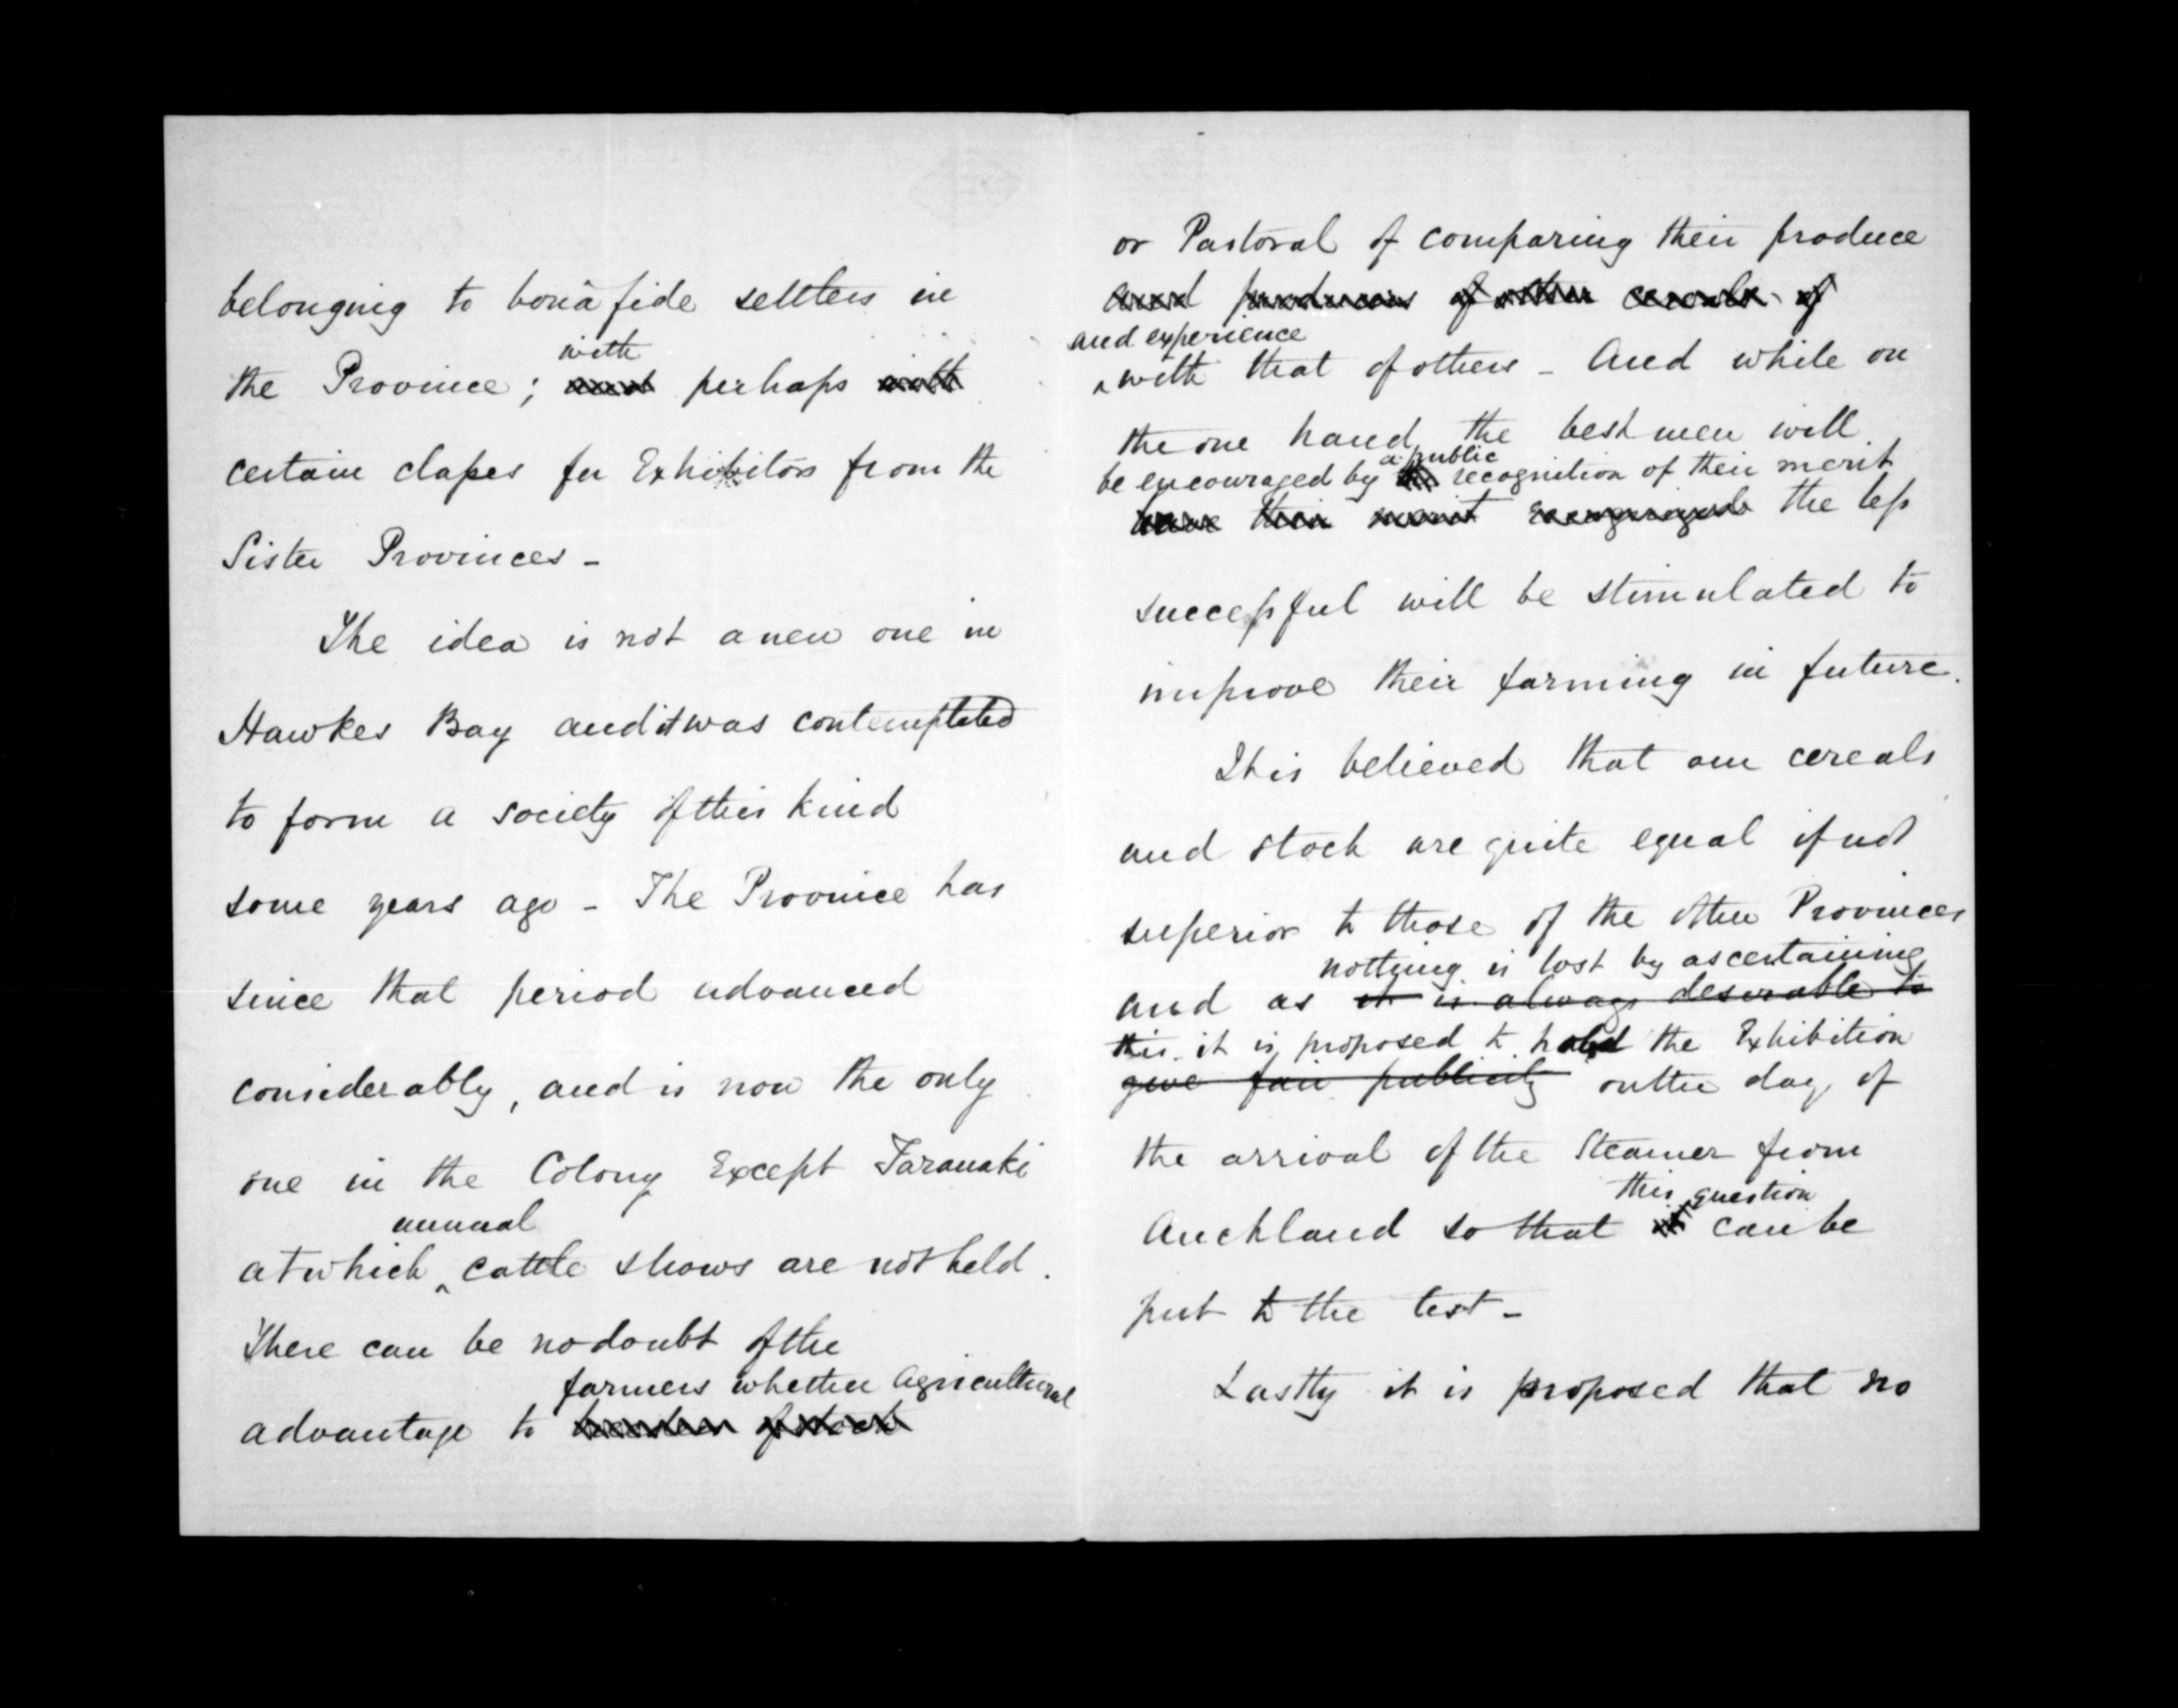 belonging to bonâ fide settlers in
with
the Province; and perhaps with
certain classes for Exhibitors from the
Sister Provinces -
The idea is not a new one in
Hawkes Bay and it was contemplated
to form a society of this kind
some years ago - The Province has
since that period advanced
considerably, and is now the only
one in the Colony Except Taranaki
annual
at which ^ cattle shows are not held.
There can be no doubt of the
farmers whether Agricultural
advantage to breeders of stock
or Pastoral of comparing their produce
and produces of other cereals of
and experience
^ with that of others - And while on
the one hand, the best men will
a public
be encouraged by recognition of their merit
have their merit recognized the less
successful will be stimulated to
improve their farming in future.
It is believed that our cereals
and stock are quite equal if not
superior to those of the other Provinces
nothing is lost by ascertaining
and as it is always desirable to
this it is proposed to hold the Exhibition
give fair publicity on the day of
the arrival of the Steamer from
this question
Auckland so that it can be
put to the test -
Lastly it is proposed that no